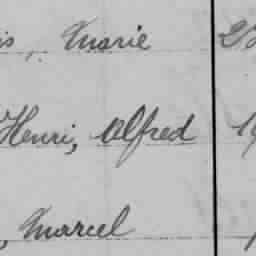 is, Marie
Henri, Alfred
, Marcel